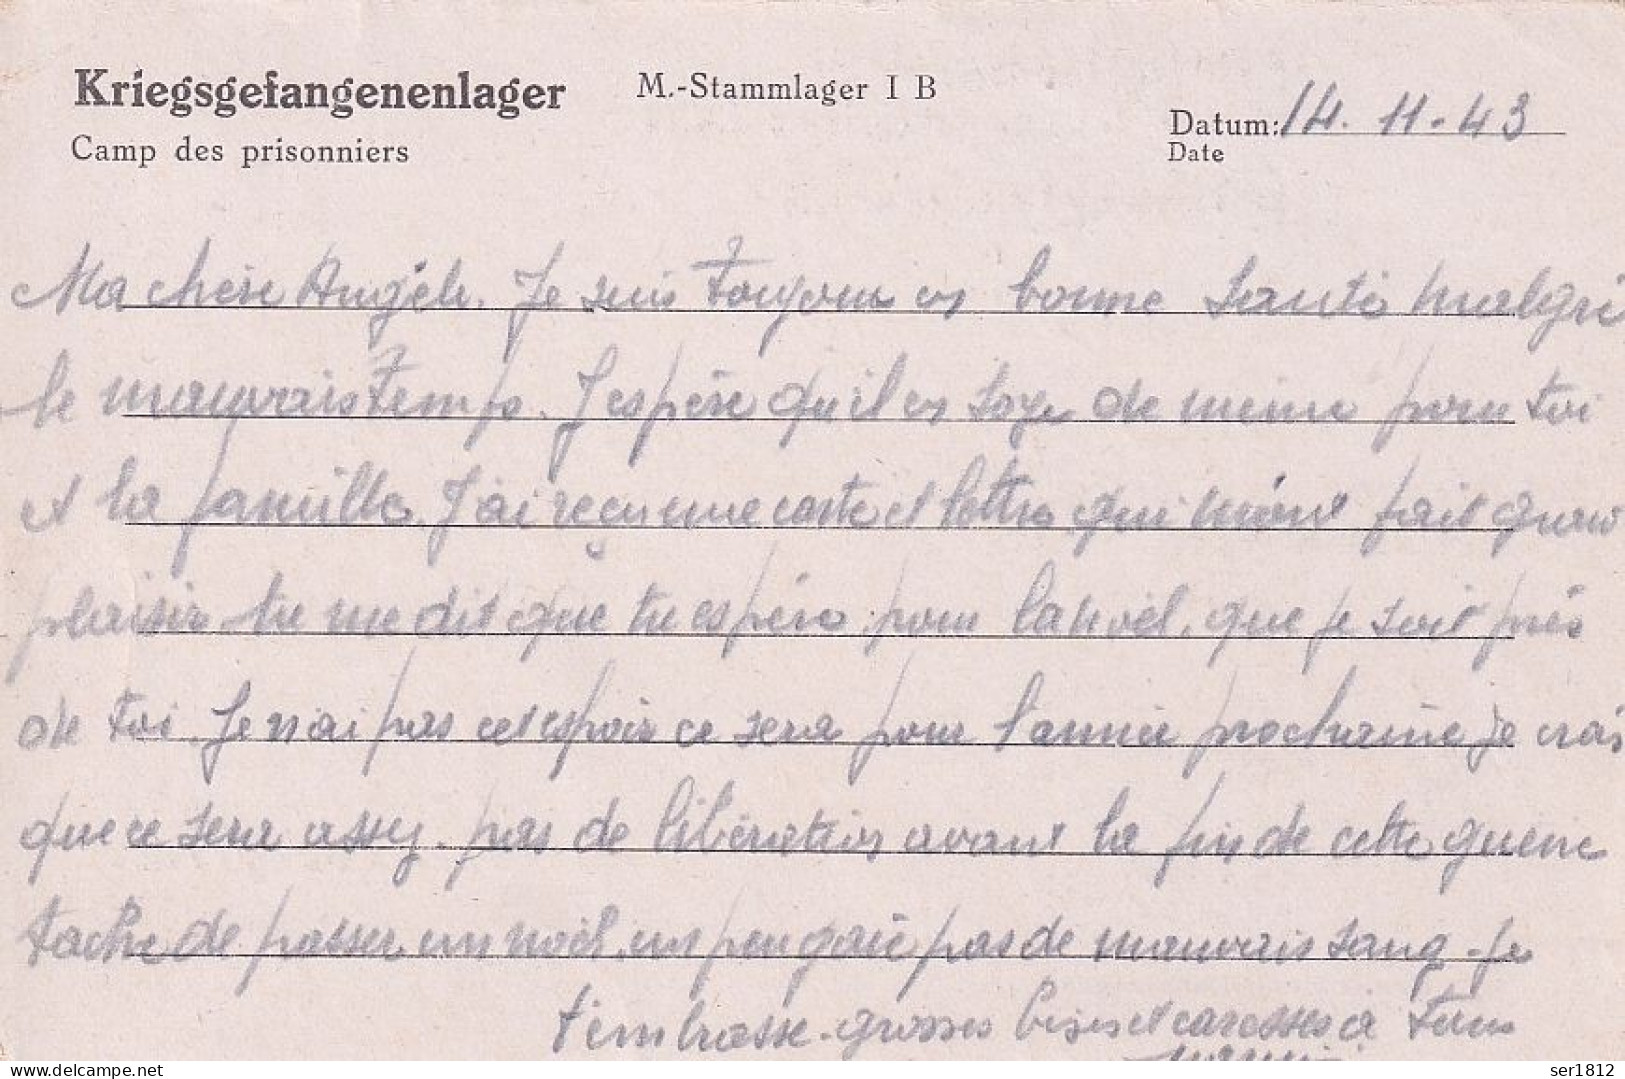 Kriegsgefangenenlager M.-Stammlager I B
Camp des prisonniers
Datum: 14. 11. 43
Date
Ma chère Angèle. Je suis toujours en bonne santé malgré
le mauvais temps. J'espère qu'il en soye de même pour toi
et la famille. J'ai reçu une carte et lettre qui m'ont fait grand
plaisir tu me dit que tu espère pour la noël, que je soit près
de toi. Je n'ai pas cet espoir ce sera pour l'année prochaine je crois
que ce sera assez. pas de libération avant la fin de cette guerre
tache de passer un noël un peu gaie pas de mauvais sang. Je
t'embrasse. grosses bises et caresses à tous
ser1812